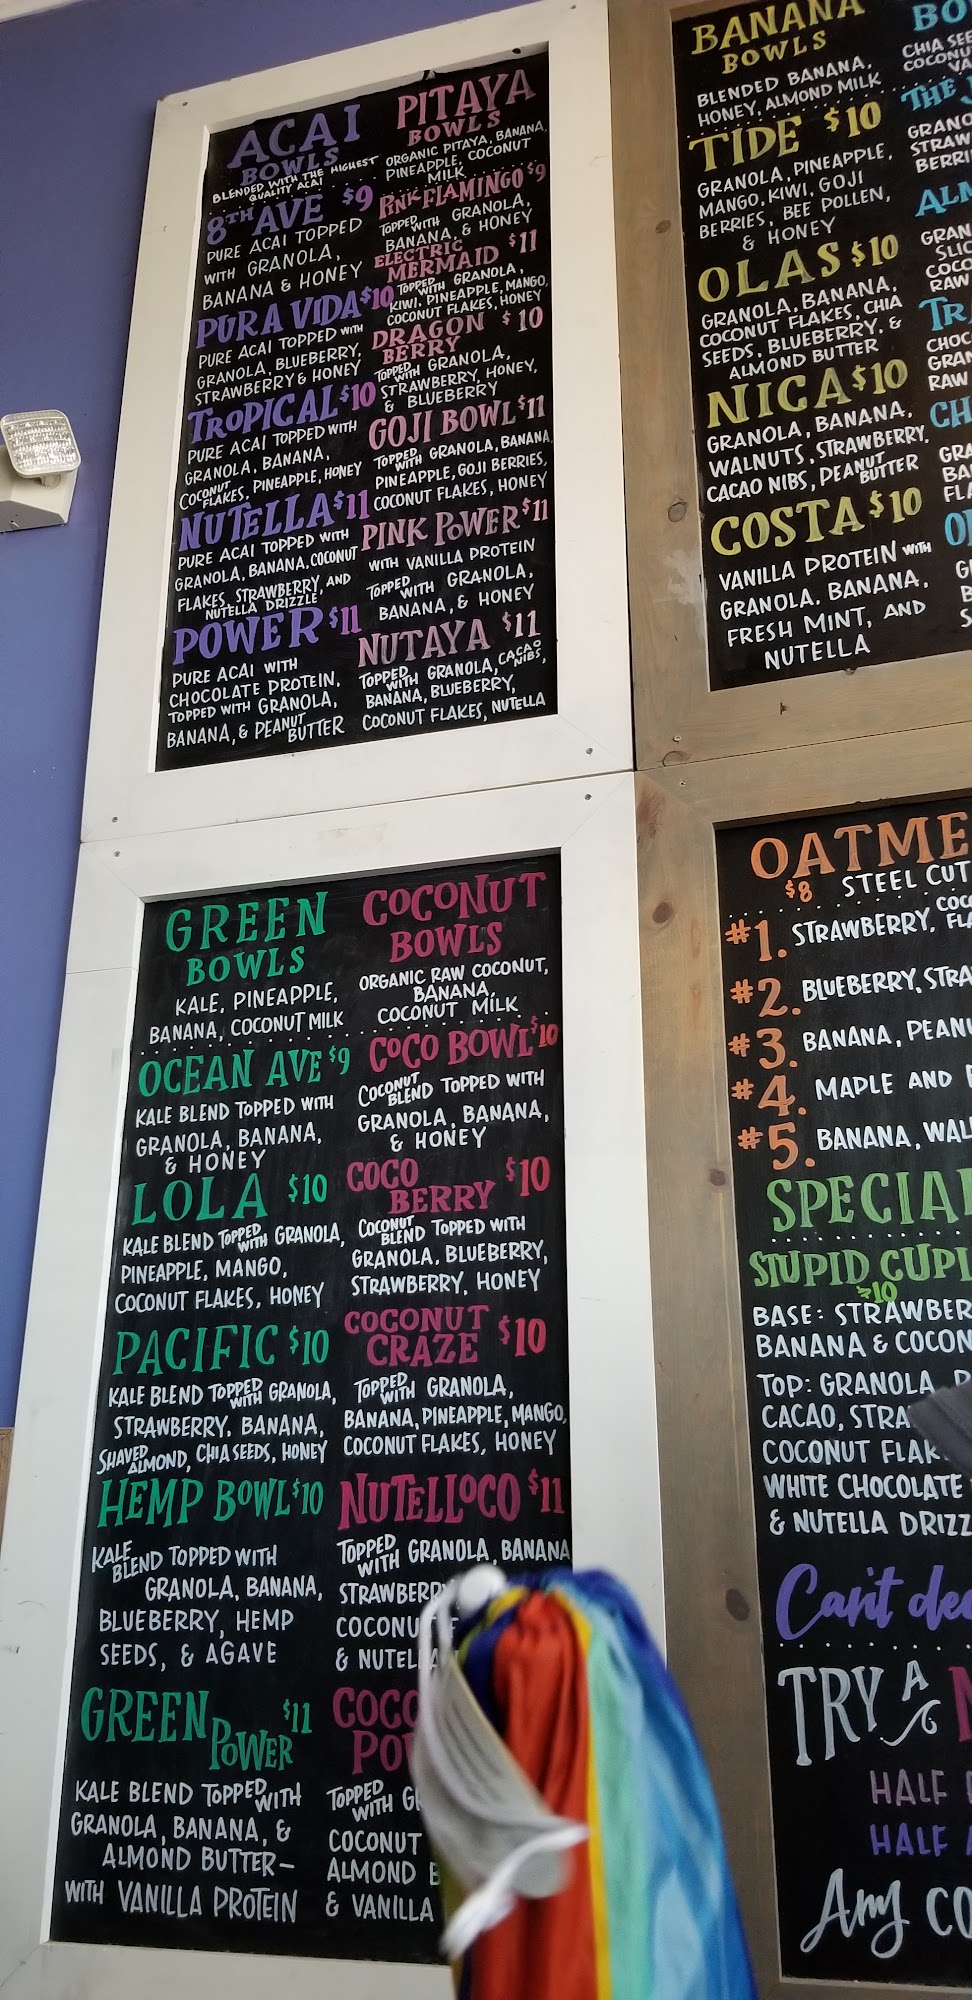 ACAI
BOWLS
BLENDED WITH THE HIGHEST
QUALITY ACAI
8TH AVE $9
PURE ACAI TOPPED
WITH GRANOLA,
BANANA & HONEY
PURA VIDA $10
PURE ACAI TOPPED WITH
GRANOLA, BLUEBERRY,
STRAWBERRY & HONEY
TROPICAL $10
PURE ACAI TOPPED WITH
GRANOLA, BANANA,
COCONUT FLAKES, PINEAPPLE, HONEY
NUTELLA $11
PURE ACAI TOPPED WITH
GRANOLA, BANANA, COCONUT
FLAKES, STRAWBERRY, AND
NUTELLA DRIZZLE
POWER $11
PURE ACAI WITH
CHOCOLATE PROTEIN,
TOPPED WITH GRANOLA,
BANANA, & PEANUT BUTTER
PITAYA
BOWLS
ORGANIC PITAYA, BANANA,
PINEAPPLE, COCONUT
MILK
PINK FLAMINGO $9
TOPPED WITH GRANOLA,
BANANA, & HONEY
ELECTRIC
MERMAID $11
TOPPED WITH GRANOLA,
KIWI, PINEAPPLE, MANGO,
COCONUT FLAKES, HONEY
DRAGON $10
BERRY
TOPPED WITH GRANOLA,
STRAWBERRY, HONEY,
& BLUEBERRY
GOJI BOWL $11
TOPPED WITH GRANOLA, BANANA,
PINEAPPLE, GOJI BERRIES,
COCONUT FLAKES, HONEY
PINK POWER $11
WITH VANILLA PROTEIN
TOPPED WITH GRANOLA,
BANANA, & HONEY
NUTAYA $11
TOPPED WITH GRANOLA, CACAO NIBS,
BANANA, BLUEBERRY,
COCONUT FLAKES, NUTELLA
BANANA
BOWLS
BLENDED BANANA,
HONEY, ALMOND MILK
TIDE $10
GRANOLA, PINEAPPLE,
MANGO, KIWI, GOJI
BERRIES, BEE POLLEN,
& HONEY
OLAS $10
GRANOLA, BANANA,
COCONUT FLAKES, CHIA
SEEDS, BLUEBERRY, &
ALMOND BUTTER
NICA $10
GRANOLA, BANANA,
WALNUTS, STRAWBERRY,
CACAO NIBS, PEANUT BUTTER
COSTA $10
VANILLA PROTEIN WITH
GRANOLA, BANANA,
FRESH MINT, AND
NUTELLA
BO
CHIA SEE
COCONU
VA
THE
GRANO
STRAW
BERRI
ALM
GRAN
SLIC
COCO
RAW
TR
CHOC
GRAN
RAW
CH
GRA
BA
FLA
GREEN
BOWLS
KALE, PINEAPPLE,
BANANA, COCONUT MILK
OCEAN AVE $9
KALE BLEND TOPPED WITH
GRANOLA, BANANA,
& HONEY
LOLA $10
KALE BLEND TOPPED WITH GRANOLA,
PINEAPPLE, MANGO,
COCONUT FLAKES, HONEY
PACIFIC $10
KALE BLEND TOPPED WITH GRANOLA,
STRAWBERRY, BANANA,
SHAVED ALMOND, CHIA SEEDS, HONEY
HEMP BOWL $10
KALE BLEND TOPPED WITH
GRANOLA, BANANA,
BLUEBERRY, HEMP
SEEDS, & AGAVE
GREEN POWER $11
KALE BLEND TOPPED WITH
GRANOLA, BANANA, &
ALMOND BUTTER-
WITH VANILLA PROTEIN
COCONUT
BOWLS
ORGANIC RAW COCONUT,
BANANA,
COCONUT MILK
COCO BOWL $10
COCONUT BLEND TOPPED WITH
GRANOLA, BANANA,
& HONEY
COCO BERRY $10
COCONUT BLEND TOPPED WITH
GRANOLA, BLUEBERRY,
STRAWBERRY, HONEY
COCONUT
CRAZE $10
TOPPED WITH GRANOLA,
BANANA, PINEAPPLE, MANGO,
COCONUT FLAKES, HONEY
NUTELLOCO $11
TOPPED WITH GRANOLA, BANANA
STRAWBERR
COCONUT F
& NUTELLA
COCO
PO
TOPPED WITH G
COCONUT
ALMOND B
& VANILLA
OATME
$8 STEEL CUT
#1. STRAWBERRY, COCO FLA
#2. BLUEBERRY, STRA
#3. BANANA, PEAN
#4. MAPLE AND
#5. BANANA, WAL
SPECIA
STUPID CUPI
$10
BASE: STRAWBER
BANANA & COCON
TOP: GRANOLA,
CACAO, STRA
COCONUT FLAK
WHITE CHOCOLATE
& NUTELLA DRIZZ
Can't dec
TRY A
HALF
HALF
Any CO